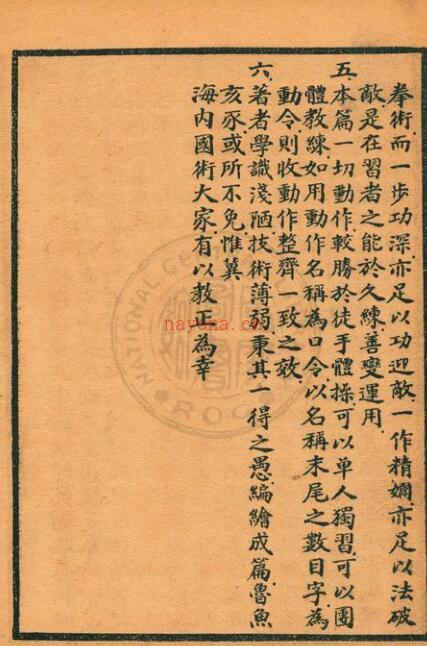 拳術而一步功深亦足以功迎敵一作精嫻亦足以法破
敵是在習者之能於久練善變運用
五本篇一切動作較勝於徒手體操可以单人獨習可以團
體教練如用動作名稱為口令以名稱末尾之數目字為
動令則收動作整齊一致之效
六著者學識淺陋技術薄弱秉其一得之愚編繪成篇魯魚
亥豕或所不免惟冀
海内國術大家有以教正為幸
NATIONAL CENTRAL
ROC
nayona.cn